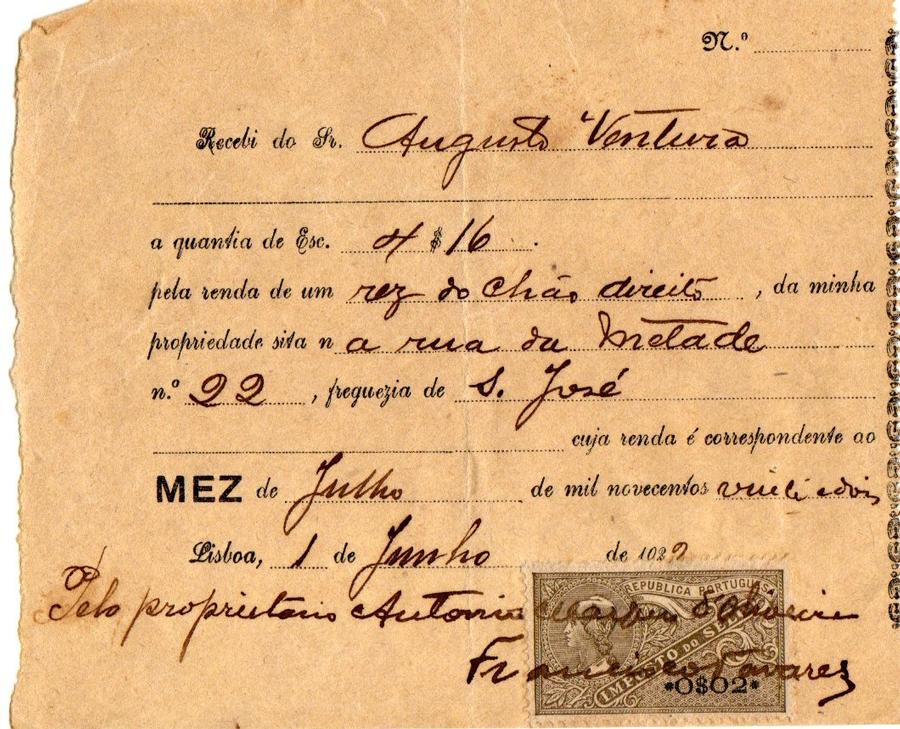 N.º
Recebi do Sr. Augusto Ventura
a quantia de Esc. 4 $ 16 .
pela renda de um rez do Chão direito , da minha
propriedade sita n a rua da Metade
n.º 22 , freguezia de S. José
cuja renda é correspondente ao
MEZ de Julho de mil novecentos vinte e dois
Lisboa, 1 de Junho de 1922
Pelo proprietario Antonio d'Oliveira
REPUBLICA PORTUGUESA
Francisco Tavares
IMPOSTO DO SELO
*0$02*